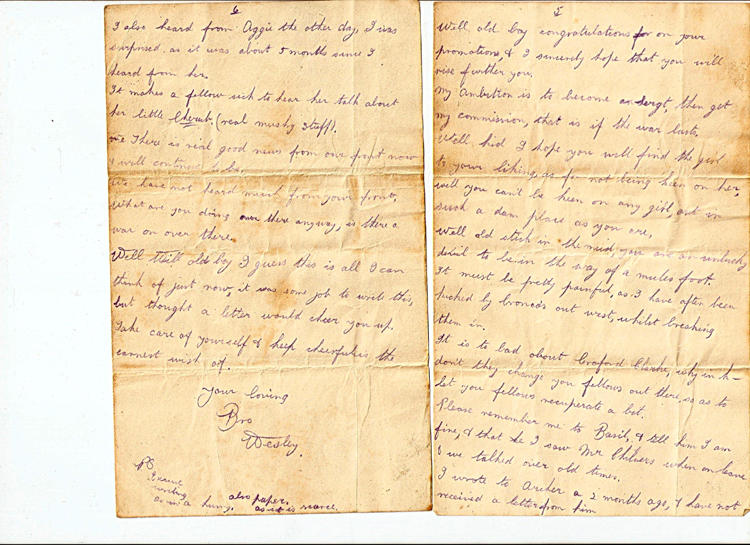 5
Well old boy congratulations for on your
promotions, & I sincerely hope that you will
rise further you.
My Ambition is to become an sergt, then get
my commission, that is if the war lasts.
Well kid I hope you will find the girl
to your liking, as for not being keen on her,
well you can't be keen on any girl, out in
such a dam place as you are,
Well old stick in the mud, you are an unlucky
devil to be in the way of a mules foot.
It must be pretty painful, as I have often been
kicked by broncos out west, whilst breaking
them in.
It is to bad about Croford Clarke, why in h-
don't they change you fellows out there, so as to
let you fellows recuperate a bit.
Please remember me to Basil, & tell him I am
fine, & that I saw Mr Chilvers when on leave
& we talked over old times.
I wrote to Archer a 2 months ago, & have not
received a letter from him
6
I also heard from Aggie the other day, I was
surprised as it was about 5 months since I
heard from her.
It makes a fellow sick to hear her talk about
her little Cherub. (real mushy stuff).
There is real good news from our front now
& will continue to be.
We have not heard much from your front,
What are you doing over there anyway, is there a
war on over there.
Well old boy I guess this is all I can
think of just now, it was some job to write this,
but thought a letter would cheer you up.
Take care of yourself & keep cheerful is the
earnest wish of.
Your loving
Bro
Wesley.
PS
Excuse
writing
as in a hurry.
also paper.
as it is scarce.